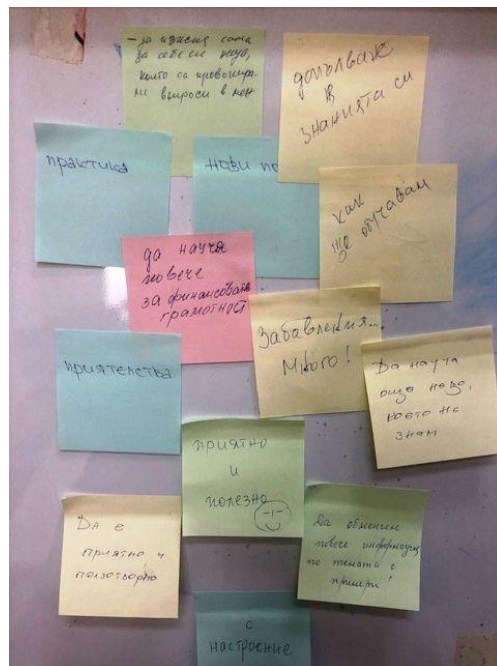 - за изясня сама
за себе си неща,
които са провокира-
ли въпроси в мен
допълваж
знанията си
практика
нови по
как
ще обучавам
да науча
повече
за финансовата
грамотност
Забавления...
Много!
приятелства
Да науча
още неща,
което не
знам
приятно
и
полезно
Да е
приятно и
ползотворно
Да обменим
повече информация
по темата с
примери!
с
настроение